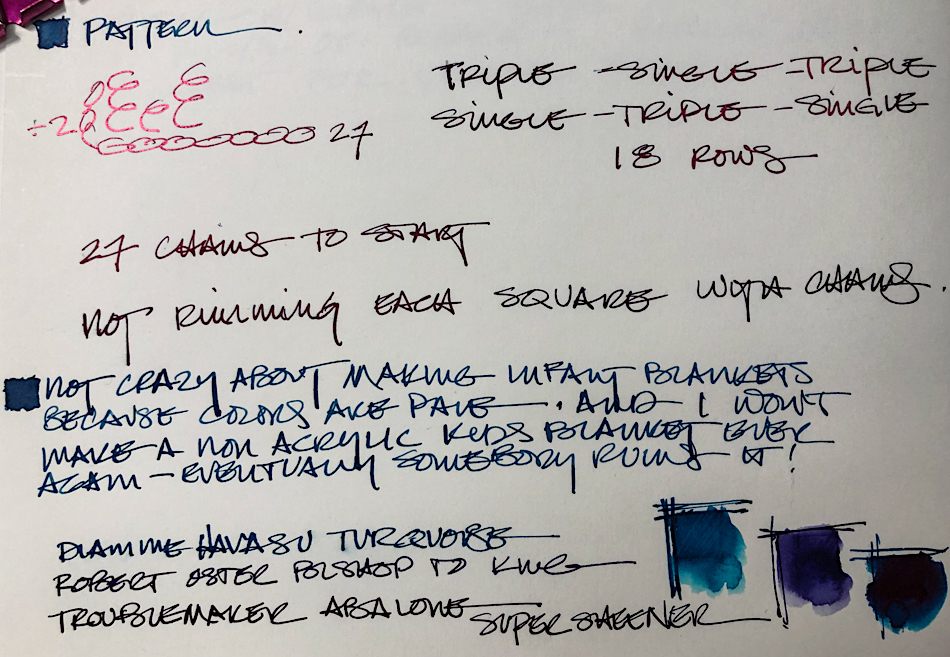 PATTERN.
TRIPLE - SINGLE - TRIPLE
SINGLE - TRIPLE - SINGLE
18 ROWS
÷2
27
27 CHAINS TO START
NOT RIMMING EACH SQUARE WITH CHAINS.
NOT CRAZY ABOUT MAKING INFANT BLANKETS
BECAUSE COLORS ARE PALE. AND I WON'T
MAKE A NON ACRYLIC KIDS BLANKET EVER
AGAIN - EVENTUALLY SOMEBODY RUINS IT!
DIAMINE HAVASU TURQUOISE
ROBERT OSTER BISHOP TO KING
TROUBLEMAKER ABALONE SUPER SHEENER